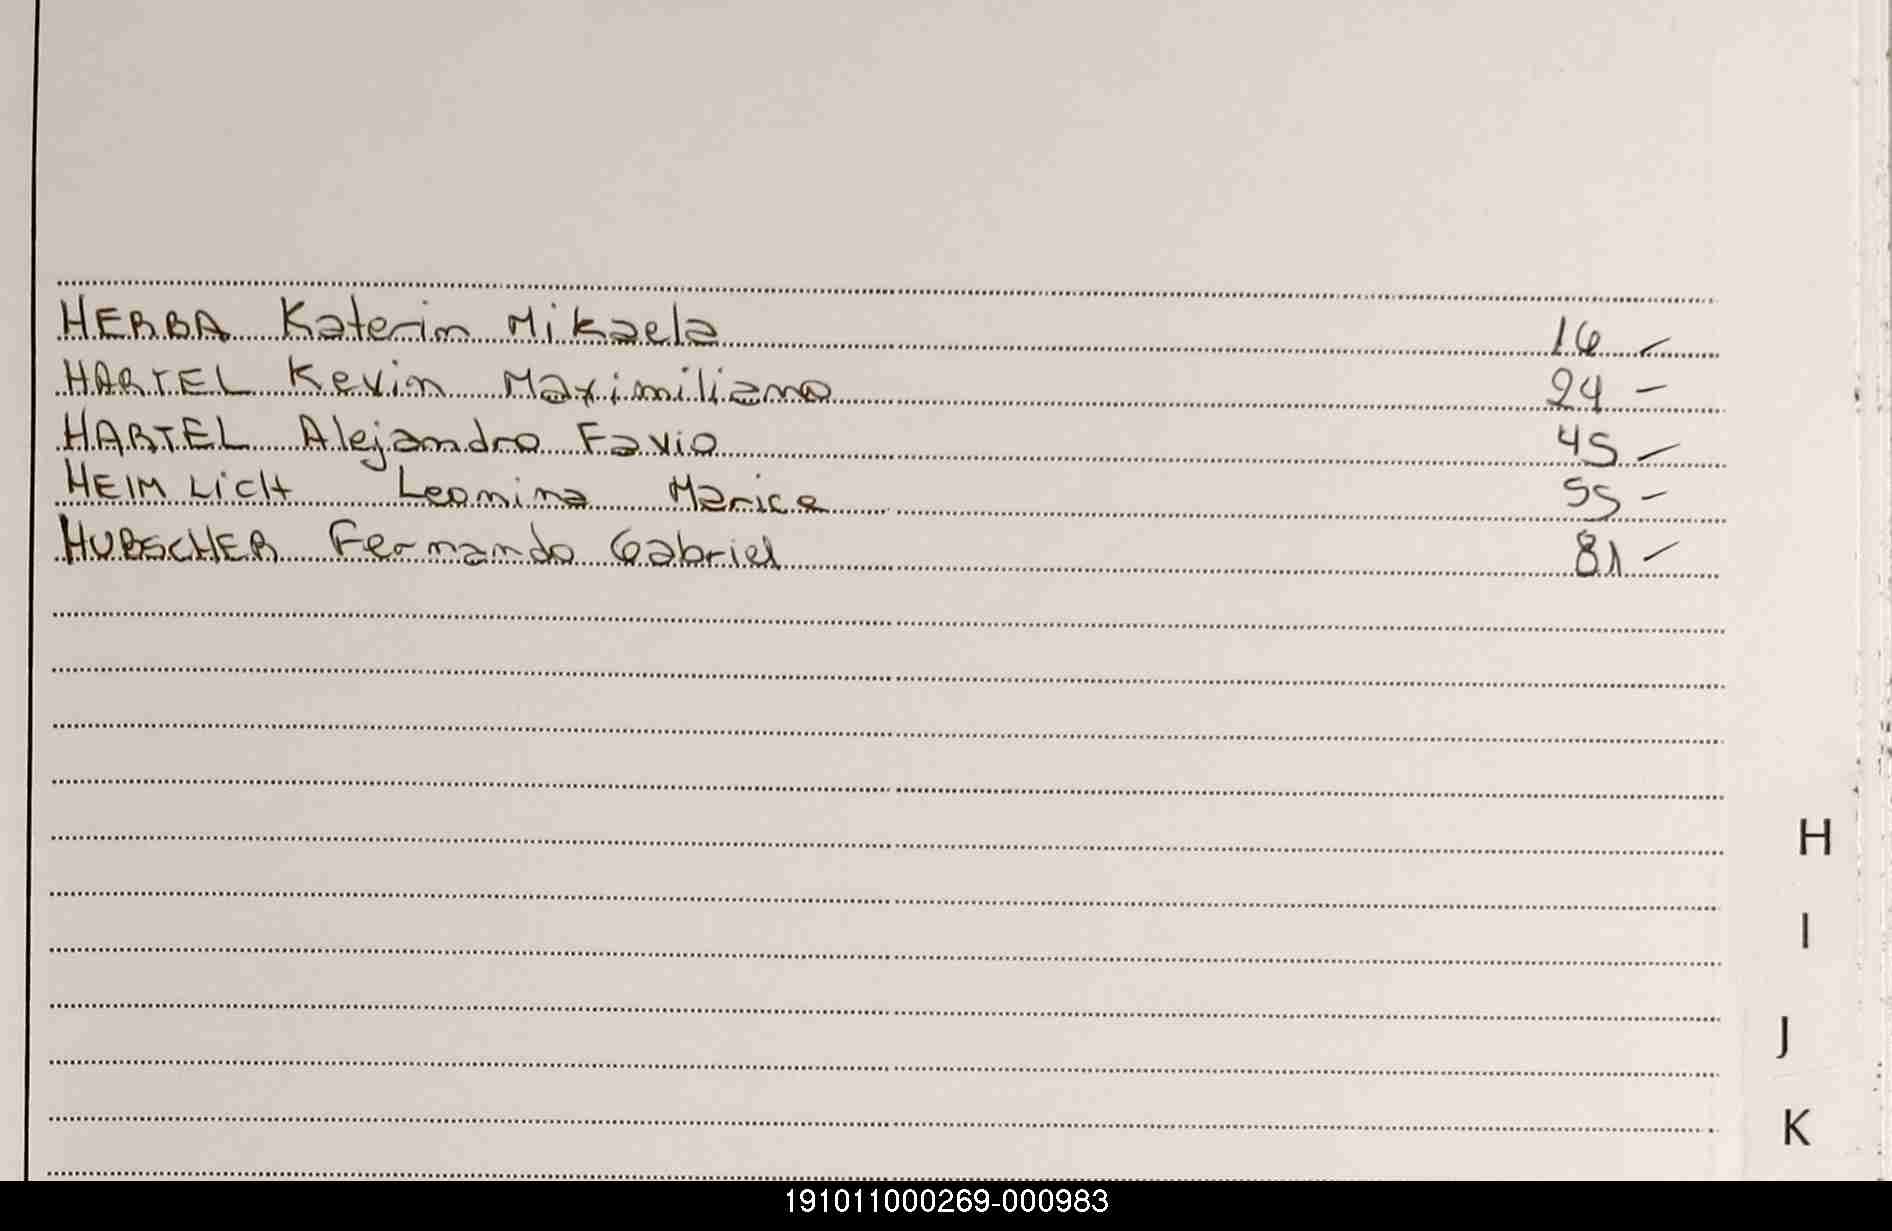 HERBA Katerin Mikaela 16 -
HARTEL Kevin Maximiliano 24 -
HARTEL Alejandro Favio 45 -
HEIMLicH Leonina Marice 55 -
HUBSCHER Fernando Gabriel 81 -
H
I
J
K
191011000269-000983